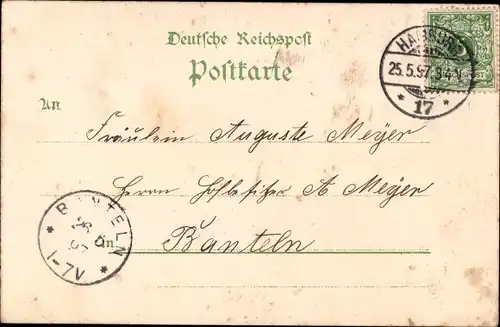 Deutsche Reichspost
Postkarte
HAMBURG
25.5.97. 3-4 N
* 17 *
An
Fräulein Auguste Meyer
Herrn Hofbesitzer A Meyer
in
Banteln
* BANTELN *
26 5
97
1-7V